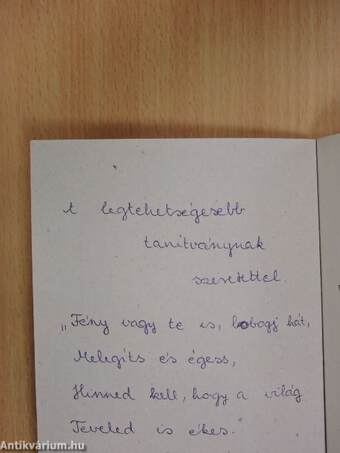 A legtehetségesebb
tanítványnak
szeretettel.
„Fény vagy te is, lobogj hát,
Melegíts és égess,
Hinned kell, hogy a világ
Teveled is ékes."
Antikvárium.hu